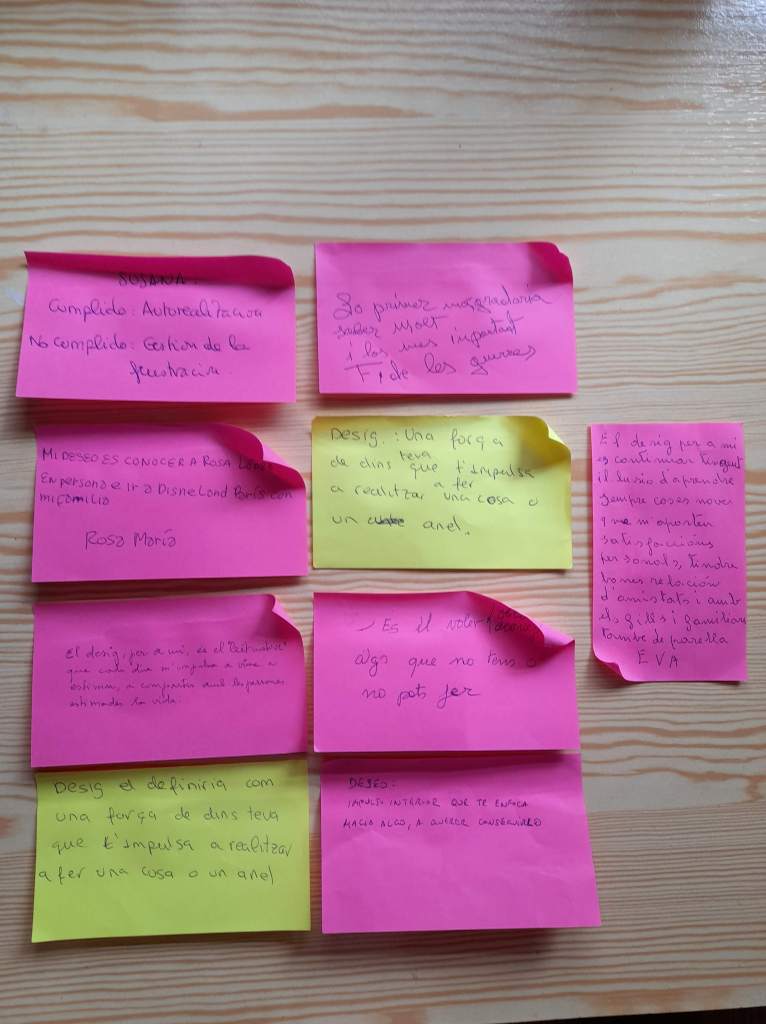 SUSANA.
Cumplido: Autorealitzacion
No cumplido: Gestion de la
frustracion.
Lo primer magradaria
saber molt
i los mes important
Fi de les guerres
MI DESEO ES CONOCER A ROSA LOPEZ
EN persona e Ir a DISNELAND París con
mi familia
Rosa María
Desig.: Una força
de dins teva que t'impulsa
a realitzar a fer una cosa o
un anel.
El desig, per a mi, es el
que cada dia m'impulsa a viure a
estimar, a compartir amb les persones
estimades la vida.
Es el voler
algo que no tens o
no pots fer
Desig el definiria com
una força de dins teva
que t'impulsa a realitzar
a fer una cosa o un anel
DESEO:
IMPULSO INTERIOR QUE TE ENFOCA
HACIA ALGO, A QUERER CONSEGUIRLO
El desig per a mi
es continuar tinguet
il·lusio d'aprendre
sempre coses noves
que m'aporten
satisfaccións
personals, tindre
bones relación
d'amistats i amb
els fills i familiars
també de parella
EVA